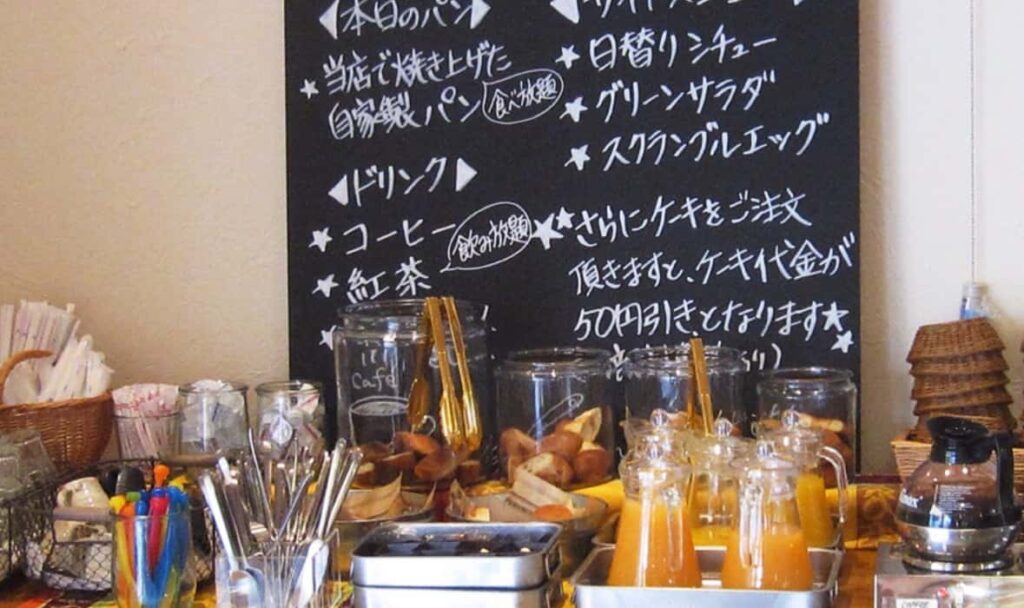 ◀本日のパン▶
★当店で焼き上げた
自家製パン
食べ放題
◀ドリンク▶
★コーヒー
飲み放題
★紅茶
★日替りシチュー
★グリーンサラダ
★スクランブルエッグ
★★さらにケーキをご注文
頂きますと、ケーキ代金が
50円引きとなります★
Cafe